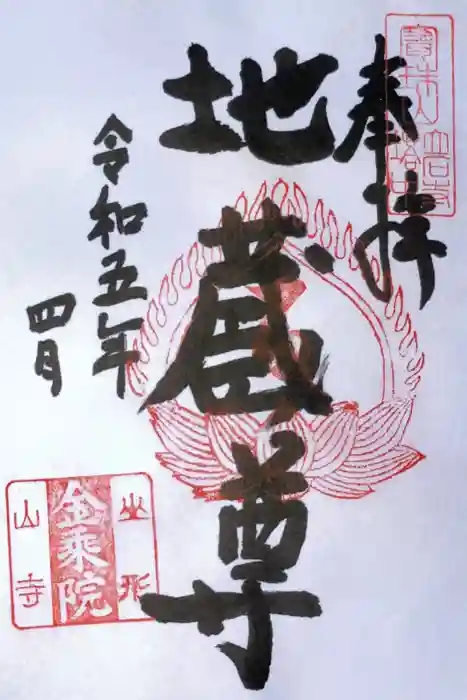 奉拝
地蔵尊
令和五年
四月
寶珠山
金乘院
山寺